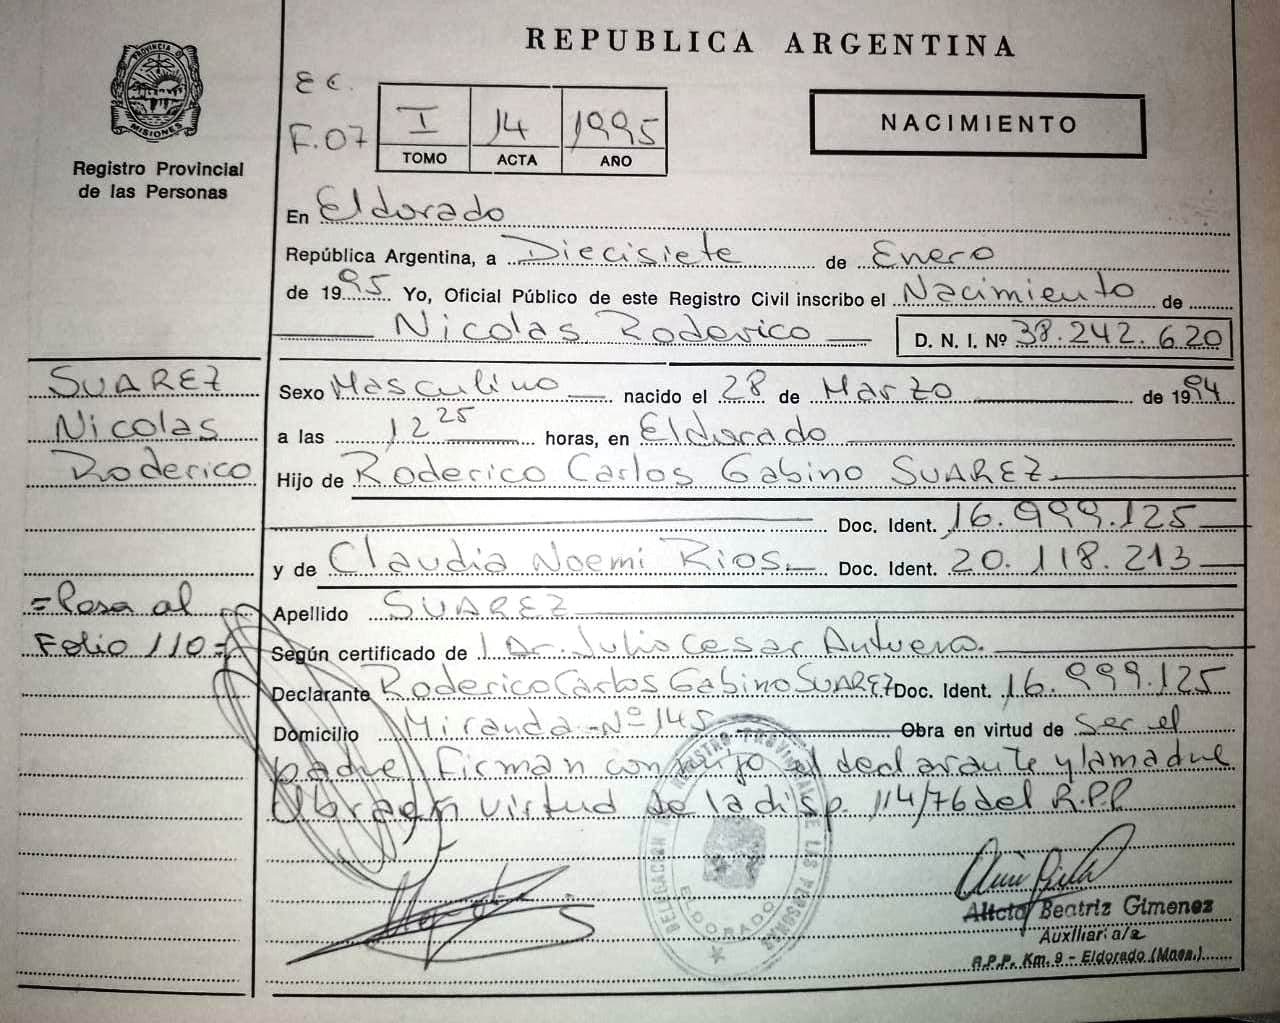 REPUBLICA ARGENTINA
PROVINCIA D
MISIONES
Registro Provincial
de las Personas
E C.
F.07
I 14 1995
TOMO ACTA AÑO
NACIMIENTO
En Eldorado
República Argentina, a Diecisiete de Enero
de 1995 Yo, Oficial Público de este Registro Civil inscribo el Nacimiento de
Nicolas Roderico D. N. I. Nº 38.242.620
SUAREZ
Nicolas
Roderico
Sexo Masculino nacido el 28 de Marzo de 1994
a las 12 25 horas, en Eldorado
Hijo de Roderico Carlos Gabino SUAREZ
Doc. Ident. 16.999.125
y de Claudia Noemi Rios Doc. Ident. 20.118.213
=Pasa al
Folio 110=
Apellido SUAREZ
Según certificado de Dr. Julio Cesar
Declarante Roderico Carlos Gabino SUAREZ Doc. Ident. 16.999.125
Domicilio Miranda Nº 145 Obra en virtud de Ser el
padre, firman el declarante y la madre
Obra en virtud de la disp. 114/76 del R.P.P
DELEGACION
PROVINCIAL DE LAS PERSONAS
ELDORADO
Beatriz Gimenez
Auxiliar a/a
R.P.P. Km. 9 - Eldorado (Mnes.)